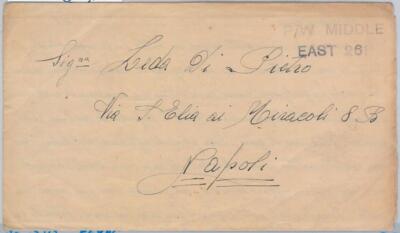 P/W MIDDLE
EAST 261
Sig.na Leda Di Pietro
Via S. Elia ai Miracoli 8 B
Napoli